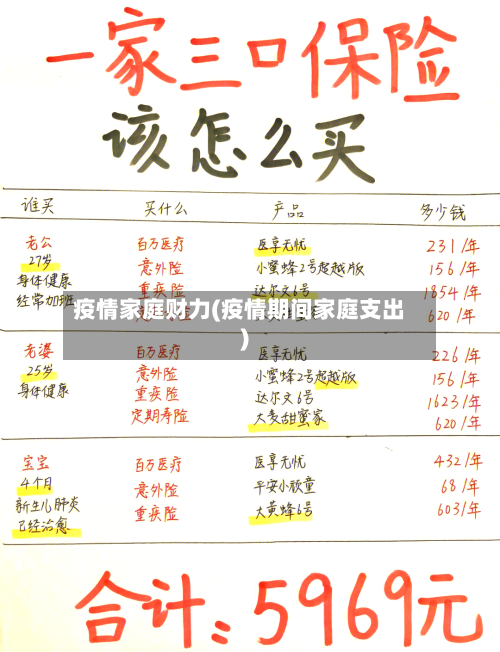 一家三口保险
该怎么买
谁买 买什么 产品 多少钱
老公 百万医疗 医享无忧 231/年
27岁 意外险 小蜜蜂2号超越版 156/年
身体健康 重疾险 达尔文6号 1854/年
经常加班 620/年
疫情家庭财力(疫情期间家庭支出
)
老婆 百万医疗 医享无忧 226/年
25岁 意外险 小蜜蜂2号超越版 156/年
身体健康 重疾险 达尔文6号 1623/年
定期寿险 大麦甜蜜家 620/年
宝宝 百万医疗 医享无忧 432/年
4个月 意外险 平安小顽童 68/年
新生儿肺炎 重疾险 大黄蜂6号 603/年
已经治愈
合计:5969元